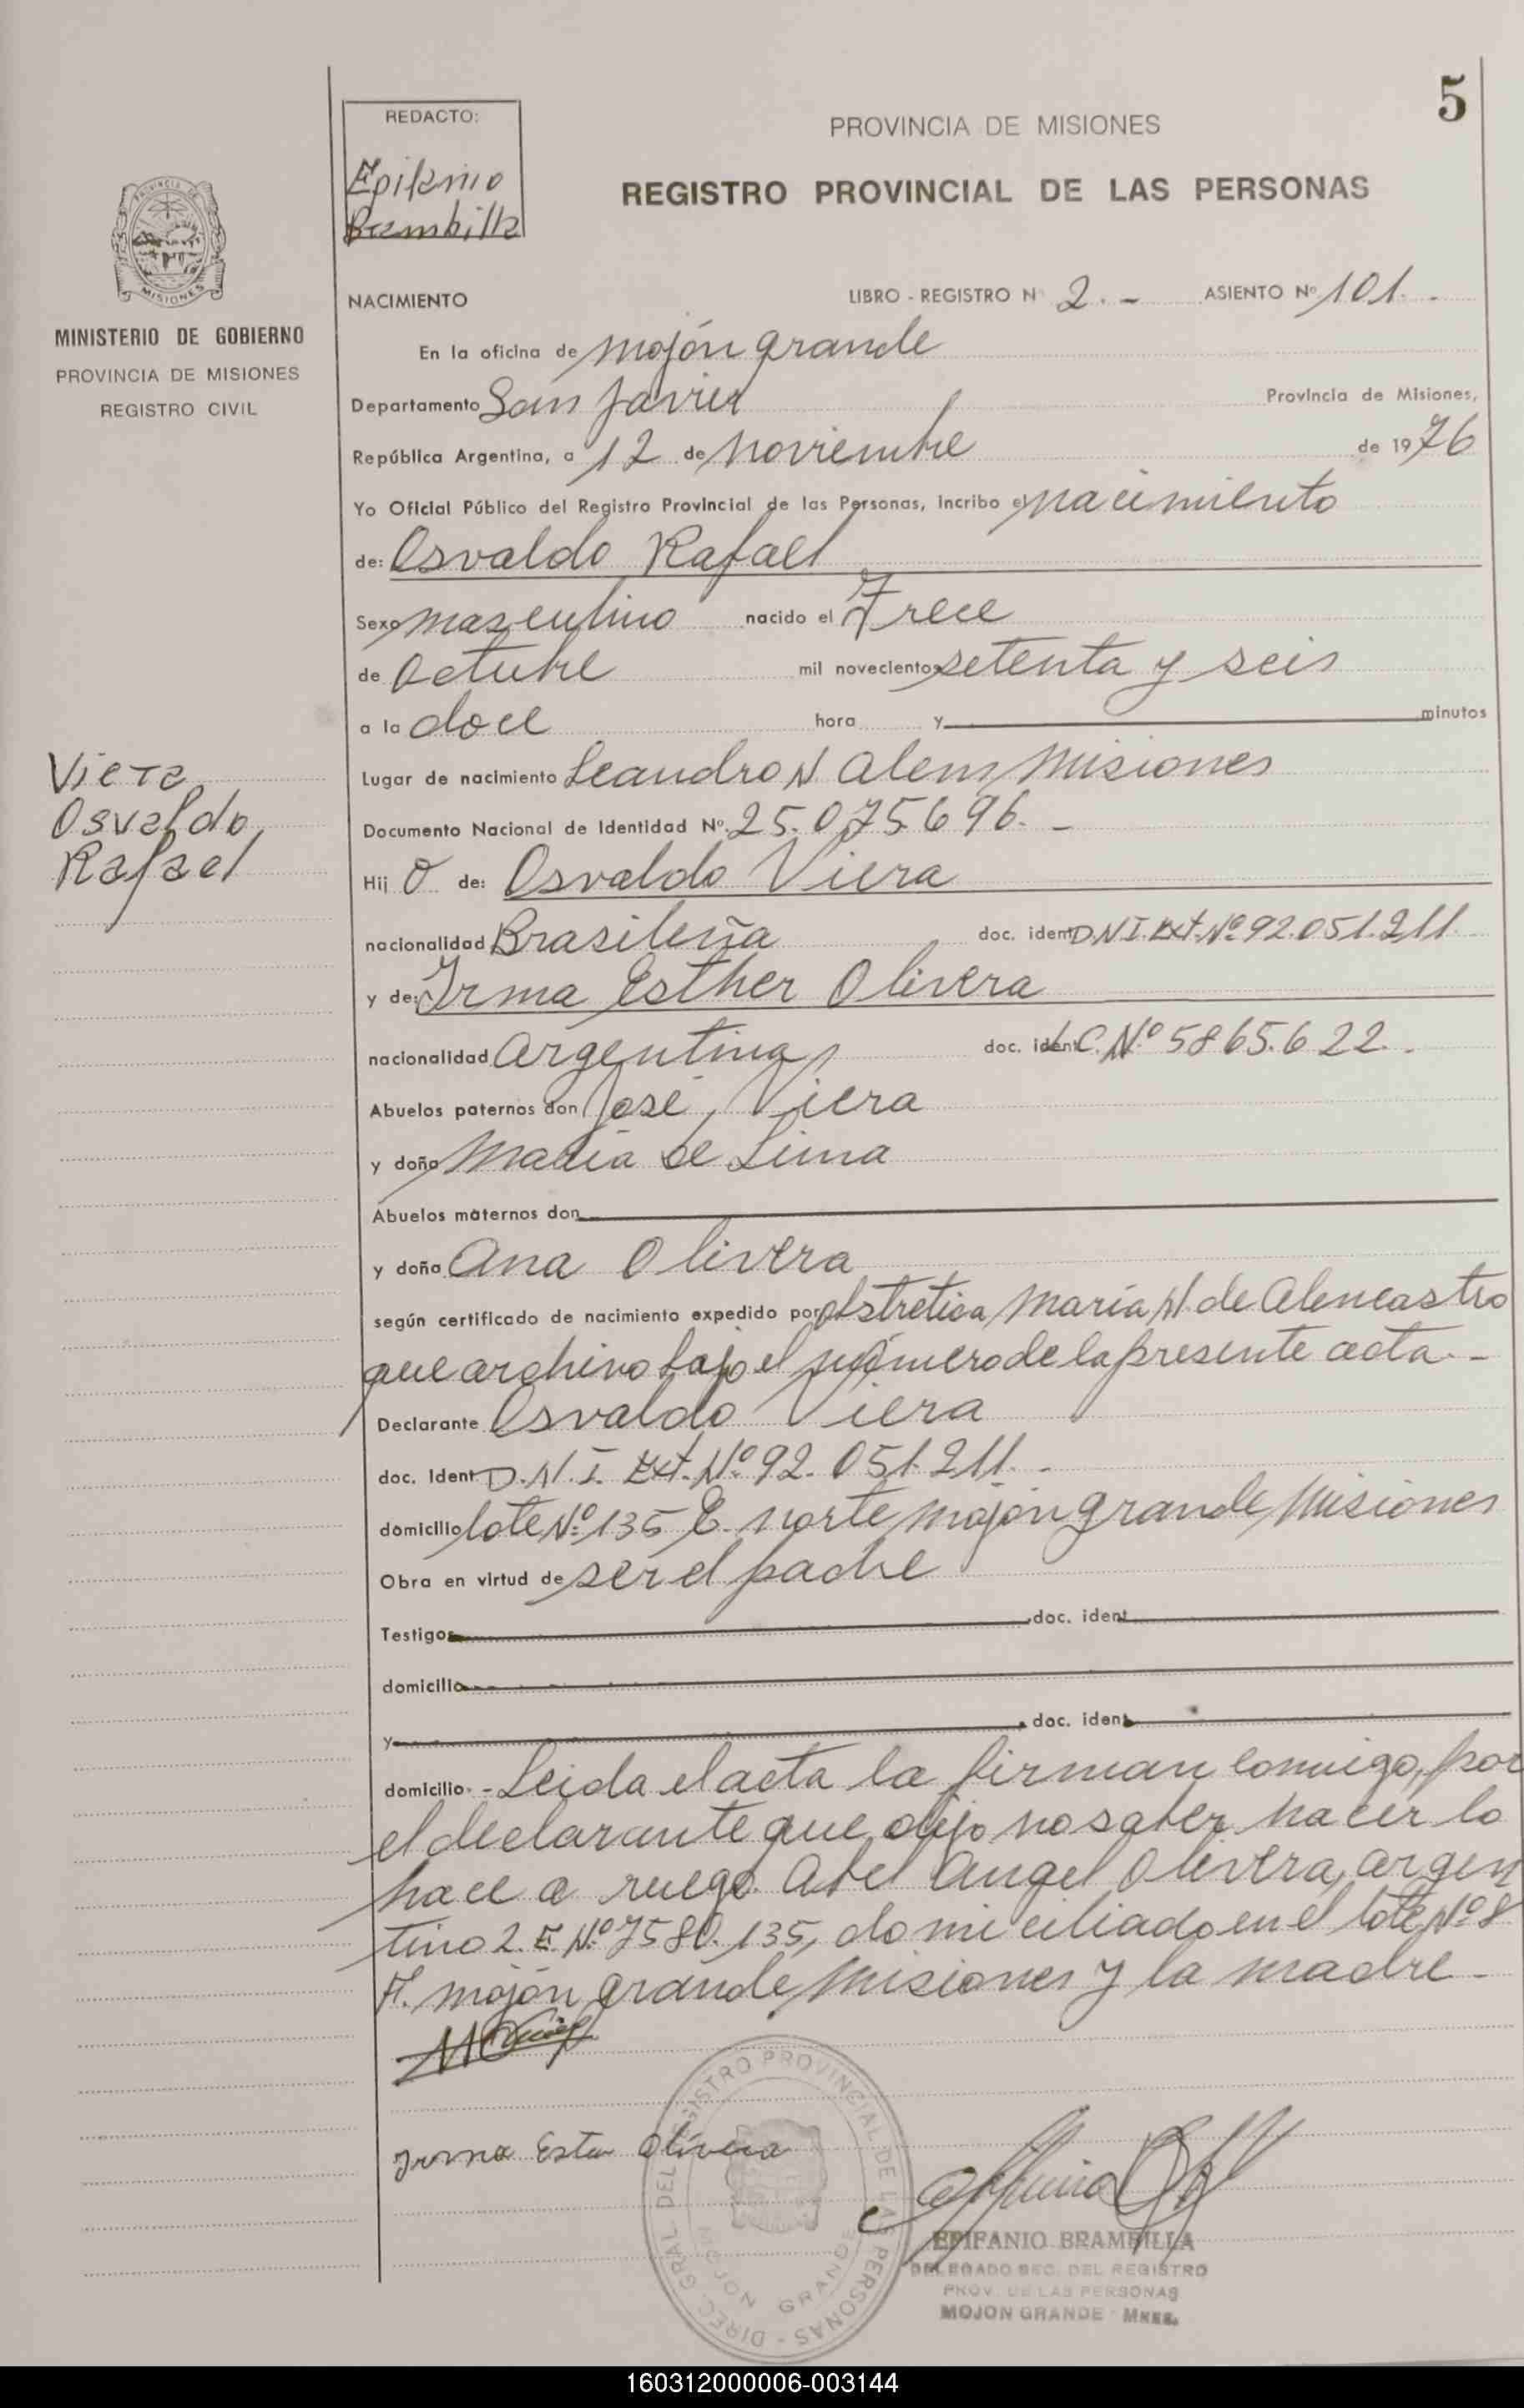 5
REDACTO:
Epifanio
Brambilla
PROVINCIA DE MISIONES
REGISTRO PROVINCIAL DE LAS PERSONAS
PROVINCIA DE
MISIONES
MINISTERIO DE GOBIERNO
PROVINCIA DE MISIONES
REGISTRO CIVIL
NACIMIENTO LIBRO - REGISTRO Nº 2.- ASIENTO Nº 101.-
En la oficina de mojón grande
Departamento San Javier Provincia de Misiones,
República Argentina, a 12 de noviembre de 1976
Yo Oficial Público del Registro Provincial de las Personas, incribo el nacimiento
de: Osvaldo Rafael
Sexo masculino nacido el Trece
de Octubre mil novecientos setenta y seis
a la doce hora y minutos
Viera
Osvaldo
Rafael
Lugar de nacimiento Leandro N Alem, Misiones
Documento Nacional de Identidad Nº. 25.075.696.-
Hij o de: Osvaldo Viera
nacionalidad Brasileña doc. ident D.N.I. Ext. Nº 92.051.211.
y de: Irma Esther Olivera
nacionalidad argentina, doc. ident L.C. Nº 5865.622.
Abuelos paternos don José, Viera
y doña María de Lima
Abuelos maternos don
y doña Ana Olivera
según certificado de nacimiento expedido por obstretica María N. de Alencastro
que archivo bajo el número de la presente acta.-
Declarante Osvaldo Viera
doc. Ident D.N.I. Ext. Nº 92.051.211.-
domicilio lote Nº 135 E. norte, mojón grande, Misiones
Obra en virtud de ser el padre
Testigos doc. ident
domicilio
y doc. ident
domicilio.- Leida el acta la firman conmigo, por
el declarante que dijo no saber hacer lo
hace a ruego Abel Angel Olivera, argen
tino L.E. Nº 7580.135, domiciliado en el lote Nº 8
F. mojón grande, Misiones y la madre.-
Irma Ester Olivera
DIREC. GRAL. DEL REGISTRO PROVINCIAL DE LAS PERSONAS
MOJON GRANDE
EPIFANIO BRAMBILLA
DELEGADO SEC. DEL REGISTRO
PROV. DE LAS PERSONAS
MOJON GRANDE - Mnes.
160312000006-003144